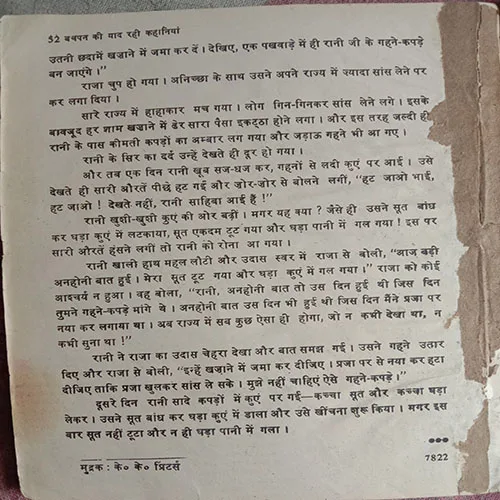 52 बचपन की याद रही कहानियां
उतनी छदामें खजाने में जमा कर दें। देखिए, एक पखवाड़े में ही रानी जी के गहने-कपड़े
बन जाएंगे।"
राजा चुप हो गया। अनिच्छा के साथ उसने अपने राज्य में ज्यादा सांस लेने पर
कर लगा दिया।
सारे राज्य में हाहाकार मच गया। लोग गिन-गिनकर सांस लेने लगे। इसके
बावजूद हर शाम खजाने में ढेर सारा पैसा इकट्ठा होने लगा। और इस तरह जल्दी ही
रानी के पास कीमती कपड़ों का अम्बार लग गया और जड़ाऊ गहने भी आ गए।
रानी के सिर का दर्द उन्हें देखते ही दूर हो गया।
और तब एक दिन रानी खूब सज-धज कर, गहनों से लदी कुएं पर आई। उसे
देखते ही सारी औरतें पीछे हट गईं और जोर-जोर से बोलने लगीं, "हट जाओ भाई,
हट जाओ! देखते नहीं, रानी साहिबा आई हैं!"
रानी खुशी-खुशी कुएं की ओर बढ़ीं। मगर यह क्या? जैसे ही उसने सूत बांध
कर घड़ा कुएं में लटकाया, सूत एकदम टूट गया और घड़ा पानी में गल गया! इस पर
सारी औरतें हंसने लगीं तो रानी को रोना आ गया।
रानी खाली हाथ महल लौटी और उदास स्वर में राजा से बोली, "आज बड़ी
अनहोनी बात हुई। मेरा सूत टूट गया और घड़ा कुएं में गल गया।" राजा को कोई
आश्चर्य न हुआ। वह बोला, "रानी, अनहोनी बात तो उस दिन हुई थी जिस दिन
तुमने गहने-कपड़े मांगे थे। अनहोनी बात उस दिन भी हुई थी जिस दिन मैंने प्रजा पर
नया कर लगाया था। अब राज्य में सब कुछ ऐसा ही होगा, जो न कभी देखा था, न
कभी सुना था!"
रानी ने राजा का उदास चेहरा देखा और बात समझ गई। उसने गहने उतार
दिए और राजा से बोली, "इन्हें खजाने में जमा कर दीजिए। प्रजा पर से नया कर हटा
दीजिए ताकि प्रजा खुलकर सांस ले सके। मुझे नहीं चाहिएं ऐसे गहने-कपड़े।"
दूसरे दिन रानी सादे कपड़ों में कुएं पर गई—कच्चा सूत और कच्चा घड़ा
लेकर। उसने सूत बांध कर घड़ा कुएं में डाला और उसे खींचना शुरू किया। मगर इस
बार सूत नहीं टूटा और न ही घड़ा पानी में गला।
●●●
7822
मुद्रक: के० के० प्रिंटर्स